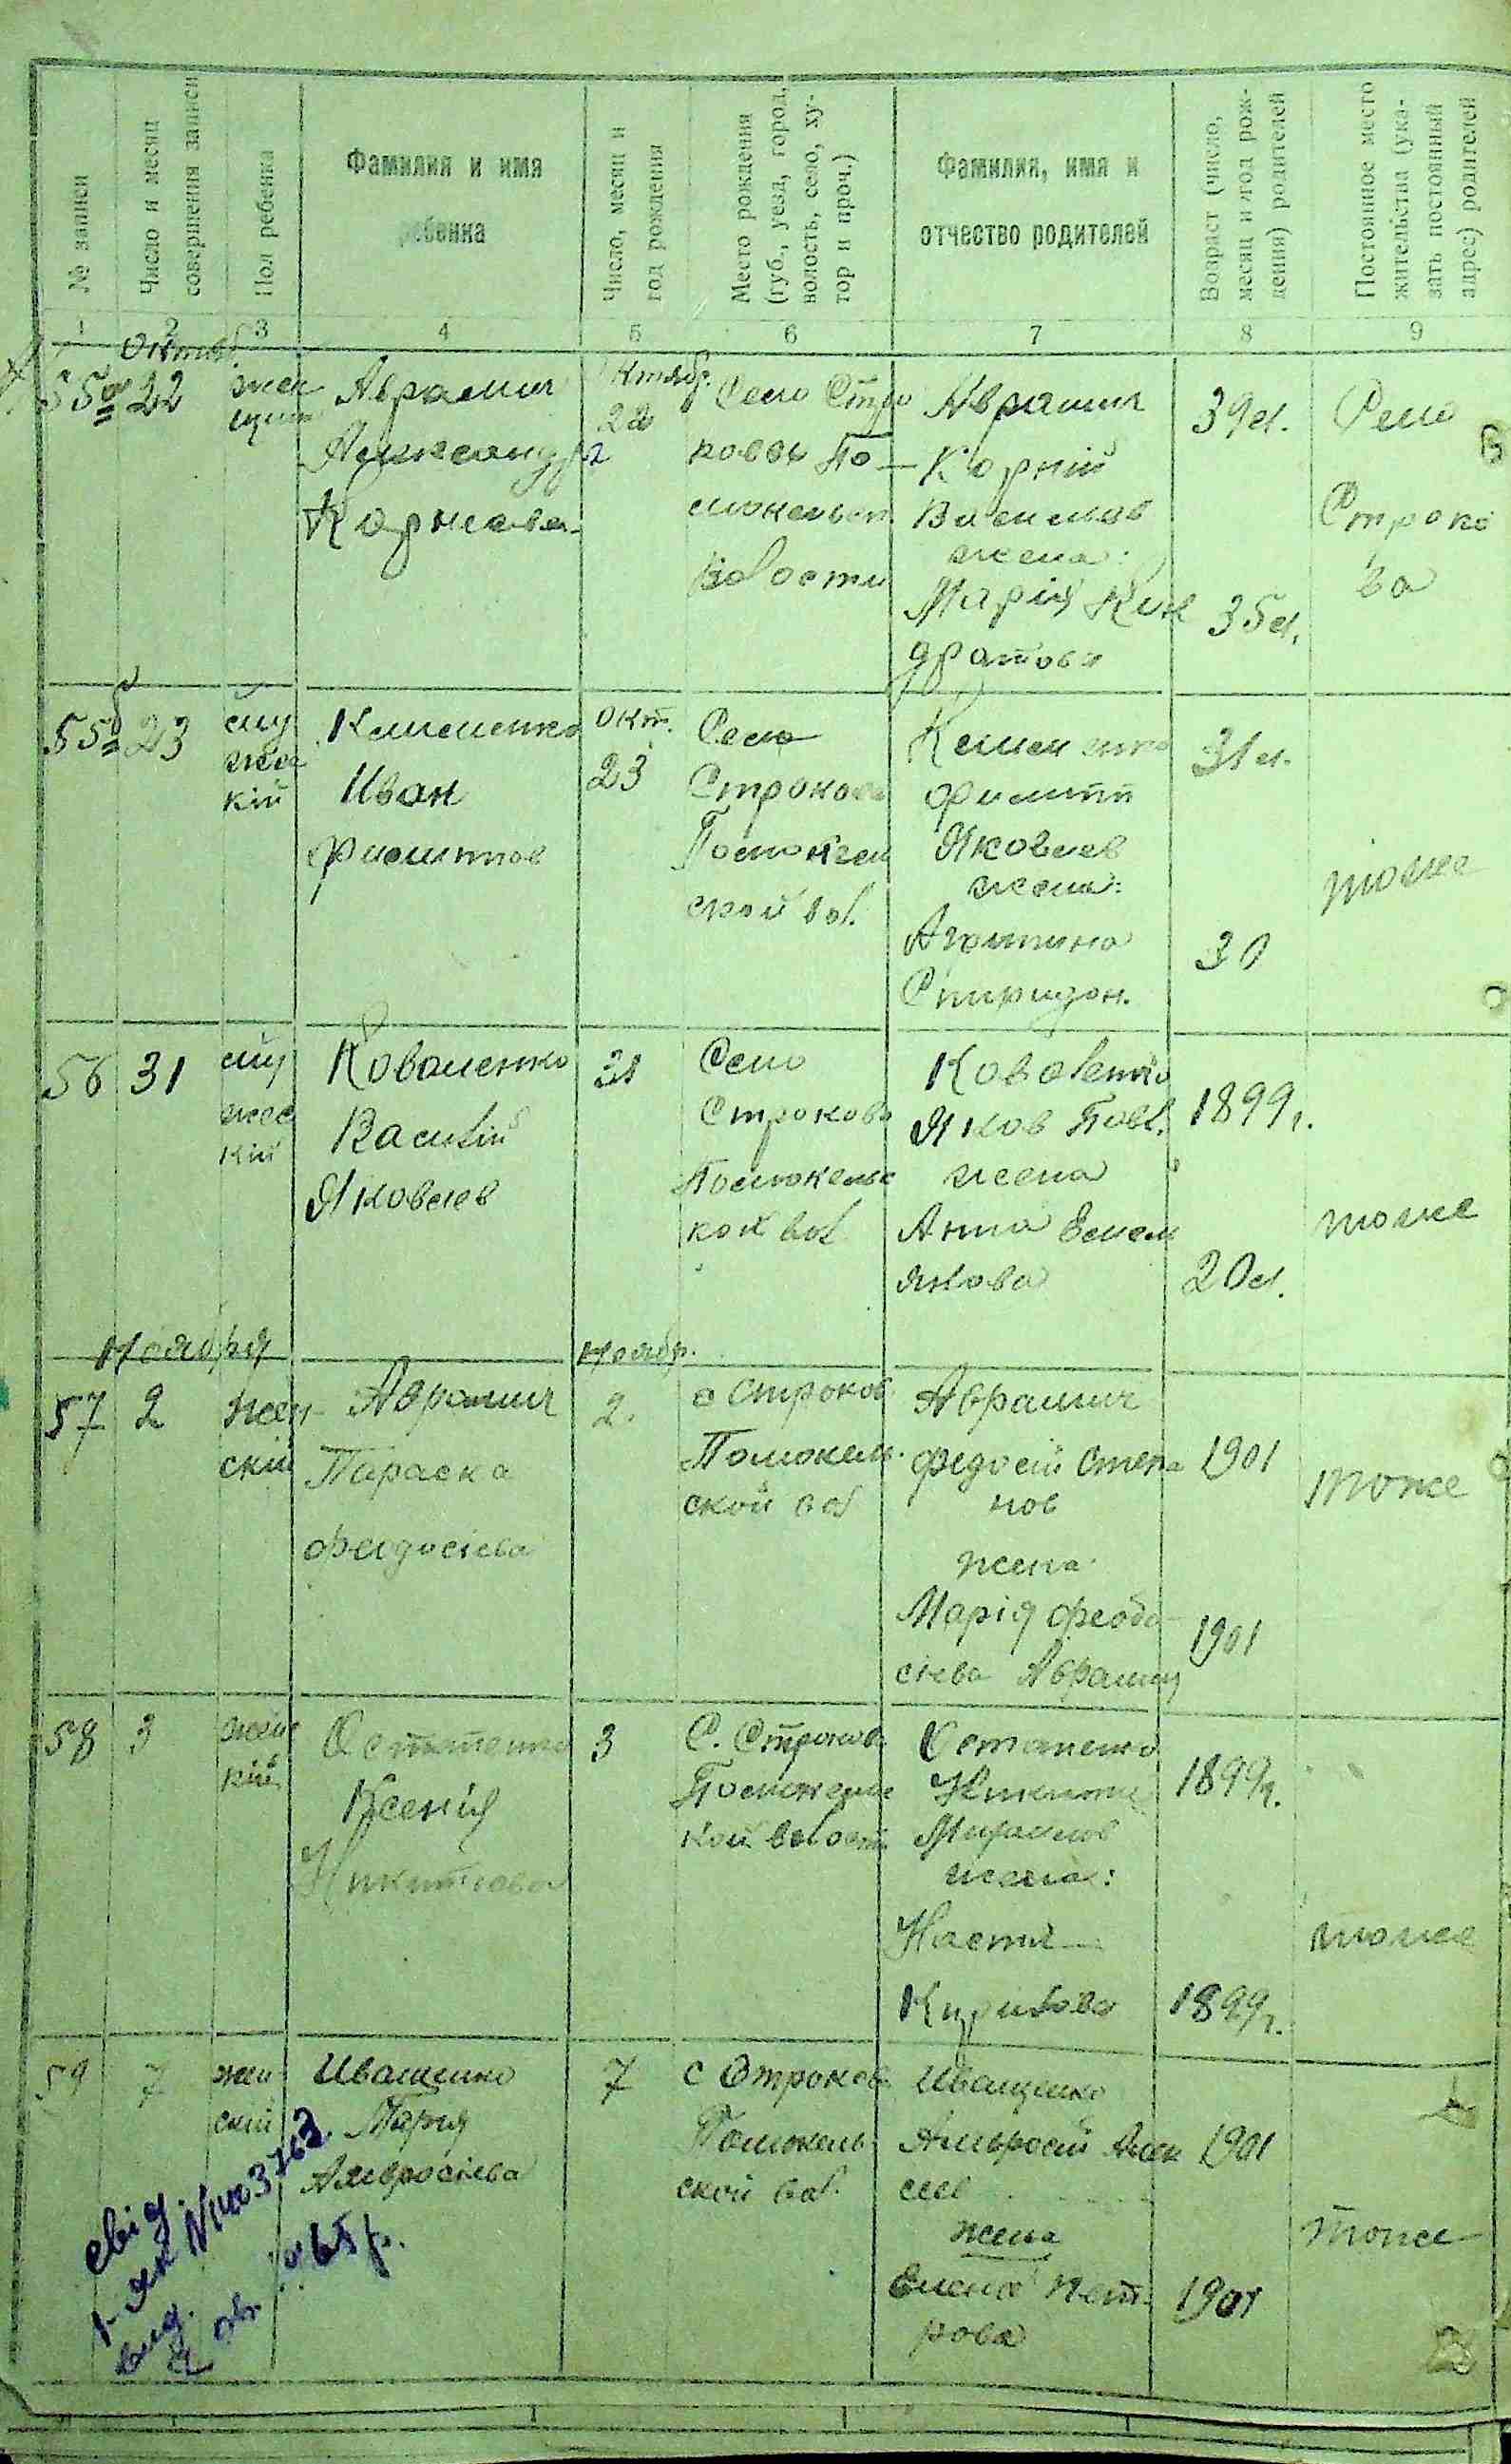 № записи
Число и месяц
совершения записи
Пол ребенка
Фамилия и имя
ребенка
Число, месяц и
год рождения
Место рождения
(губ., уезд, город,
волость, село, ху-
тор и проч.)
Фамилия, имя и
отчество родителей
Возраст (число,
месяц и год рож-
дения) родителей
Постоянное место
жительства (ука-
зать постоянный
адрес) родителей
1 2 3 4 5 6 7 8 9
55а 22
Аврамич
Александра
Корнева
Октябр.
22
Село Стро
кова По
волости
Аврамич
Корній
Васильев
жена:
Марія Кон
дратова
39л.
35л.
Село
Строко
ва
55б 23
му
жес
кій
Клименко
Иван
Филиппов
Окт.
23
Село
Строкова
ской вол.
Клименко
Филипп
Яковлев
жена:
Спиридон.
31л.
30
тоже
56 31
му
жес
кій
Коваленко
Василій
Яковлев
31
Село
Строкова
кой вол
Коваленко
Яков Павл.
жена
Анна Емел
янова
1899г.
20л.
тоже
Ноября
57 2
жен
скій
Аврамич
Параска
Федосіева
Ноябр.
2.
с Строков
ской вол
Аврамич
Федосій Степа
нов
жена
Марія Феодо
сіева Аврамич
1901
1901
тоже
58 3
женс
кій
Остапенко
Ксенія
Никитова
3
С. Строков
кой волости
Остапенко
Никита
Михаилов
жена:
Настя
Кирилова
1899г.
1899г.
тоже
59 7
жен
скій
Иващенко
Мария
Амвросіева
7
с Строков
ской вол.
Иващенко
Амвросій Алек
сеев
жена
Елена Пет
рова
1901
1901
тоже
свід.
І-ЯК №403763
вид.